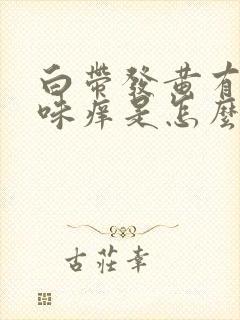 白帶發黄有
味痒是怎麼
古莊幸